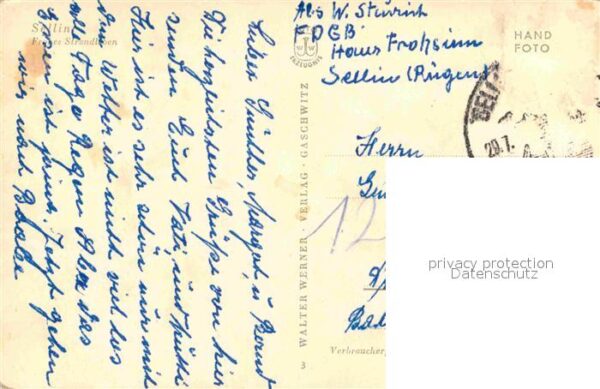 Sellin
Frohes Strandleben
HAND
FOTO
Abs W. Steurich
FDGB
Haus Frohsinn
Sellin (Rügen)
Lieber Günther, Margot u Bernd
Die herzlichsten Grüße von hier
senden Euch Vati und Mutti
Hier ist es sehr schön nur mit
dem Wetter ist nicht viel los
alle Tage Regen Aber das
Essen ist prima. Jetzt gehen
wir nach Baabe
WALTER WERNER · VERLAG · GASCHWITZ
3
Herrn
12
SELL
29.7.
privacy protection
Datenschutz
Verbraucherp